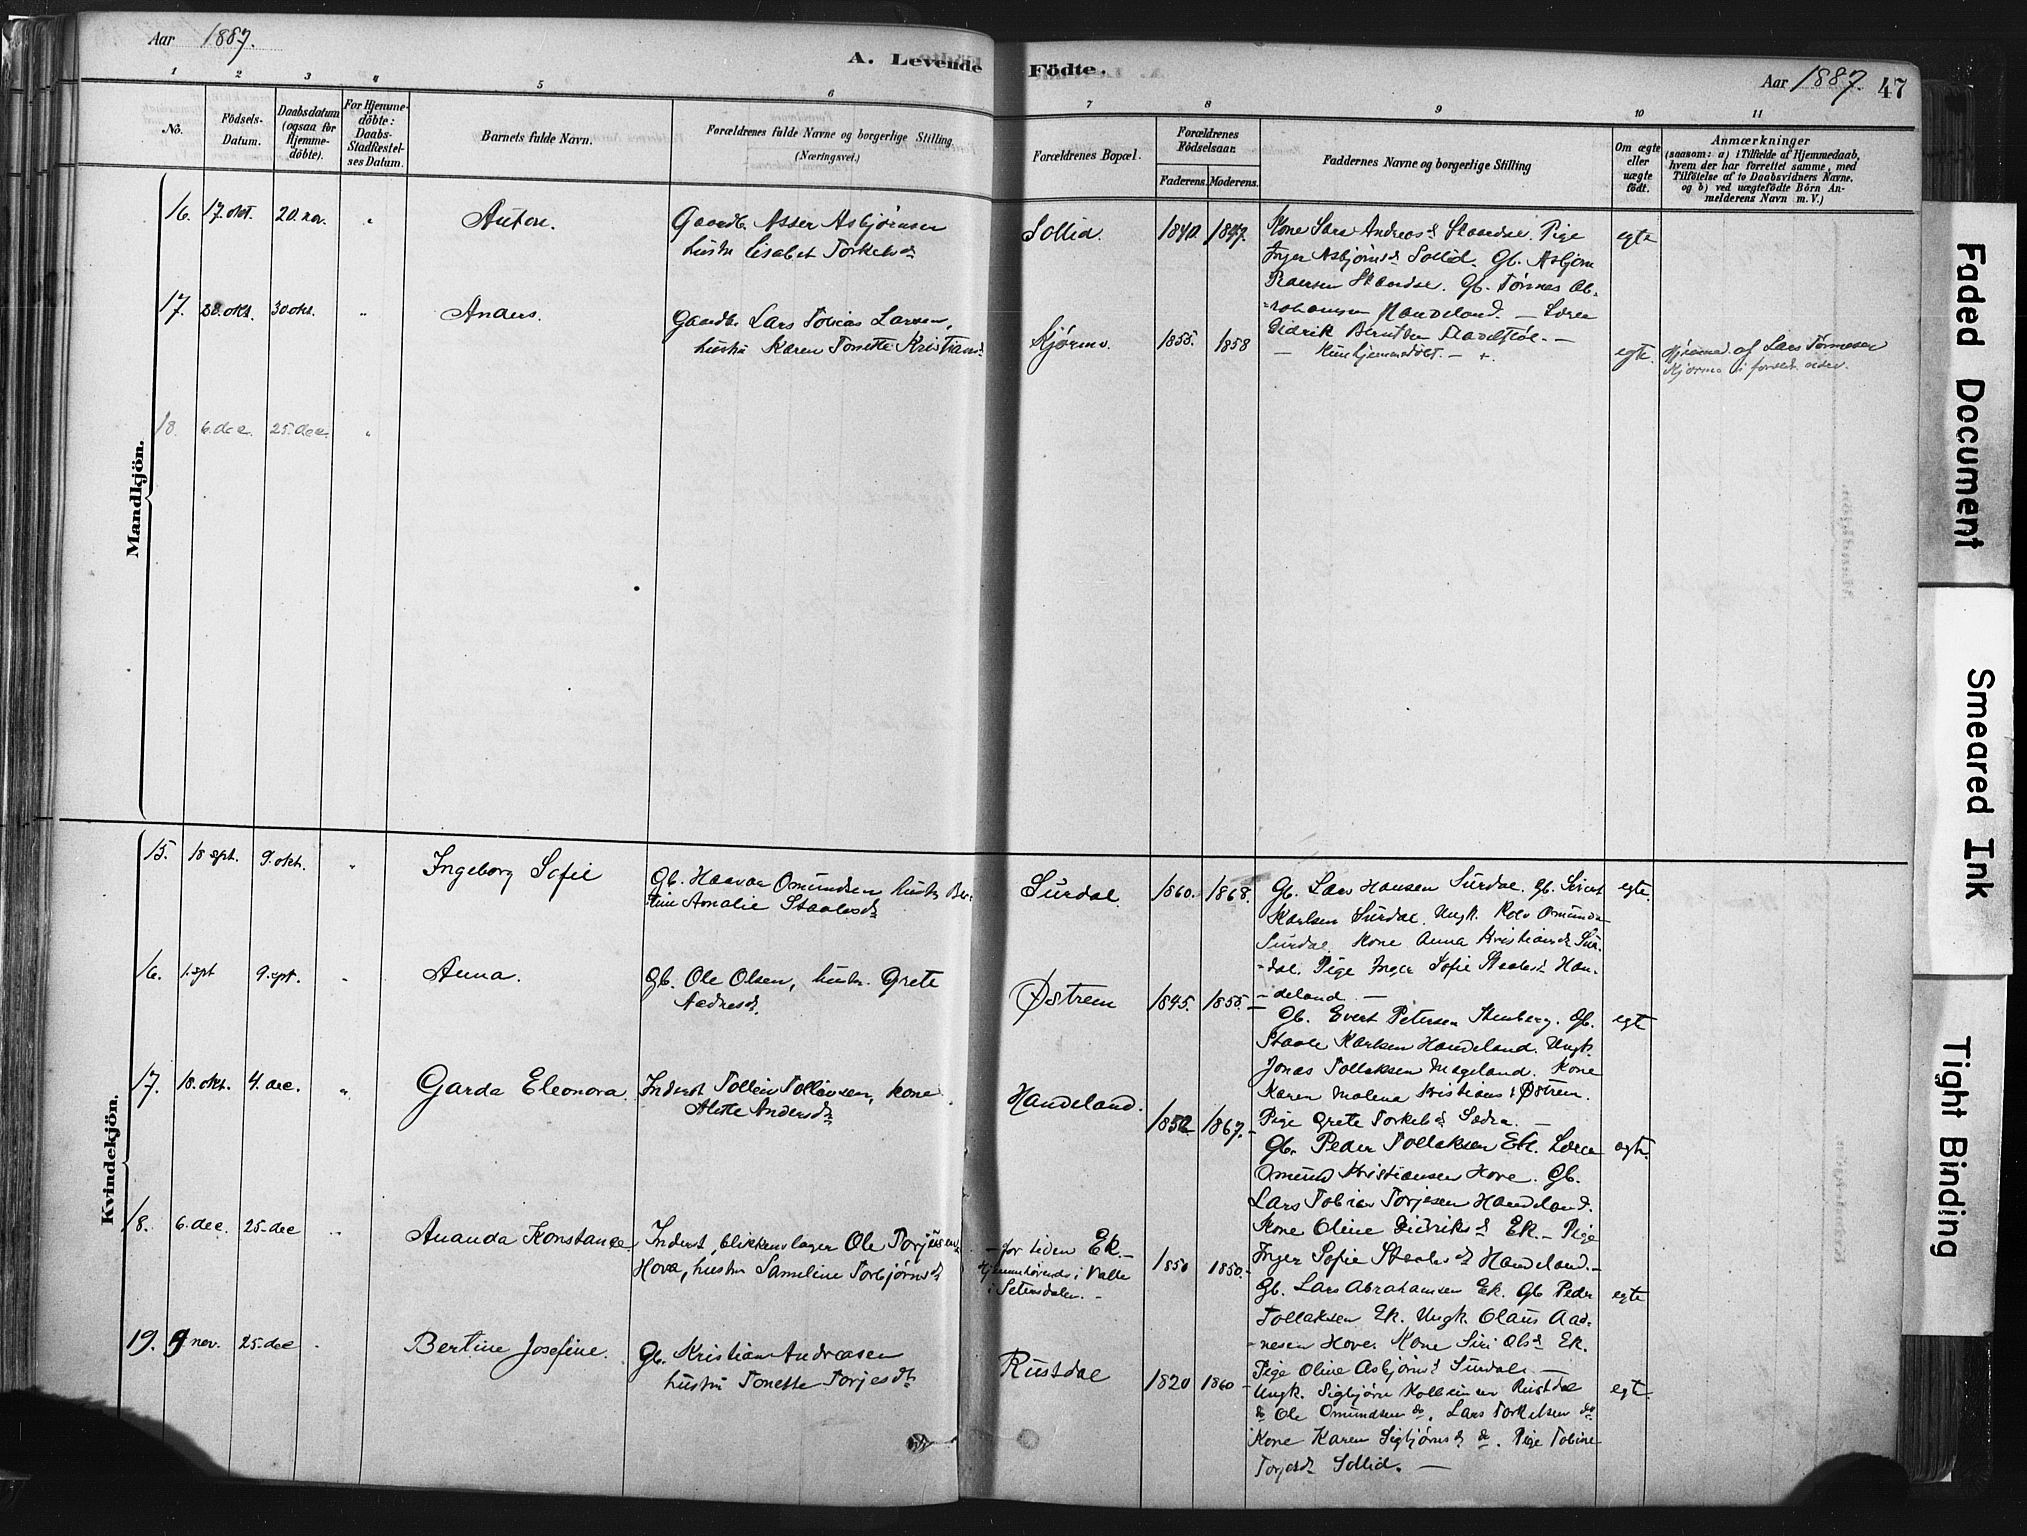 Aar 1887.
A. Levende Födte.
Aar 1887. 47
1 2 3 4 5 6 7 8 9 10 11
No.
Födsels-
Datum.
Daabsdatum
(ogsaa for
Hjemme-
döbte).
For Hjemme-
döbte:
Daabs-
Stadfæstel-
ses Datum.
Barnets fulde Navn.
Forældrenes fulde Navne og borgerlige Stilling
(Næringsvei.)
Forældrenes Bopæl.
Forældrenes
Födselsaar.
Faderens. Moderens.
Faddernes Navne og borgerlige Stilling
Om ægte
eller
uægte
födt.
Anmærkninger
(saasom: a) i Tilfælde af Hjemmedaab,
hvem der har forrettet samme, med
Tilföielse af to Daabsvidners Navne.
og b) ved uægtefödte Börn An-
melderens Navn m.V.)
Mandkjön.
16. 17. okt. 20. nov. " Anton.
Gaardb. Asser Asbjørnsen
hustru Lisabet Torkelsd.
Sollid. 1840 1847.
Kone Sara Andreasd. Skaardal. Pige
Inger Asbjørnsd. Sollid. Gb. Asbjørn
Skaardal. Gb. Tønnes Ab-
-rahamsen Handeland. — Lærer
Didrik Berntsen —
egte
17. 28. okt. 30 okt. " Anders.
Gaardb. Lars Tobias Larsen,
hustru Karen Tonette Kristiansd.
Kjørmo. 1855. 1858
— Kun hjemmedøbt — +
egte. Hjemmed. af Lars Tønnesen
Kjørmo i foreld.
18. 6. dec. 25. dec. "
Kvindekjön.
15. 18 spt. 9. okt. " Ingeborg Sofie
Gb. Haavar Omundsen hustr. Ber-
tine Amalie Staalesd.
Surdal. 1860. 1868.
Gb. Lars Hansen Surdal. Gb. Sivert
Karlsen Surdal. Ungk. Omunds.
Surdal. Kone Anna Kristiansd. Sur-
-dal. Pige Inger Sofie Staalesd. Han-
-deland. —
egte.
16. 1. spt 9. spt. " Anna.
Gb. Ole Olsen, hustr. Grete
Aadnesd.
Østrem 1845. 1855.
Gb. Evert Petersen Stenberg. Gb.
Staale Karlsen Handeland. Ungk.
Jonas Tollaksen Mageland. Kone
Karen Malena Kristiansd. Østrem.
Pige Grete Torkelsd. —
egte
17. 18. okt. 4. dec. " Garda Eleonora.
Inderst Tollein Tolleivsen, kone
Alette Andersd.
Handeland. 1852 1867.
Gb. Peder Tollaksen Ek. Lærer
Omund Kristiansen Hove. Gb.
Lars Tobias Torjesen Handeland.
Kone Oline Didriksd. Ek. — Pige
Inger Sofie Staalesd. Handeland. —
egte.
18. 6. dec. 25. dec " Ananda Konstance.
Inderst, blikkenslager Ole Torjusen
Hova, hustru Sameline Torbjørnsd.
— for tiden Ek. —
Hjemmhørende i Valle
i Setersdalen. —
1850 1850.
Gb. Lars Abrahamsen Ek. Gb Peder
Tollaksen Ek. Ungk. Olaus Aad-
-nesen Hover. Kone Siri Olsd. Ek.
Pige Oline Asbjørnsd. Surdal. —
egte
19. 9 nov. 25. dec " Bertine Josefine.
Gb. Kristian Andreasen
hustru Tonette Torjesd.
Rustdal 1820 1860
Ungk. Sigbjørn Rustdal
do Ole Omundsen do. Lars Torkelsen do
Kone Karen Sigbjørnsd. do. Pige Tobine
Torjesd. Sollid. —
egte.
Faded Document
Smeared Ink
Tight Binding